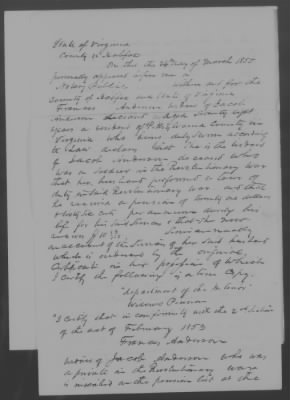 State of Virginia
County of Halifax
On this the 24 day of March 1855
personally appeared before me a
Notary Public within and for the
County of Halifax and State of Virginia
Frances Anderson widow of Jacob
Anderson deceased aged eight
years a resident of Pittsylvania County in
Virginia who being duly sworn according
to Law declares that she is the widow
of Jacob Anderson deceased who
was a soldier in the Revolutionary War
that her husband performed a tour of
duty in said Revolutionary War and that
he received a pension of twenty six dollars
& sixty six cents per annum during his
life for his said services & that she now
draws Semi annually
on account of the services of her said husband
which is evidenced by the original
Certificate in her possession of which
I certify the following is a true Copy.
"department of the Interior
Widows Pension
"I certify that in conformity with the 2nd Section
of the act of February 1853
Frances Anderson
widow of Jacob Anderson who was
a private in the Revolutionary War
is inscribed on the pension list at the